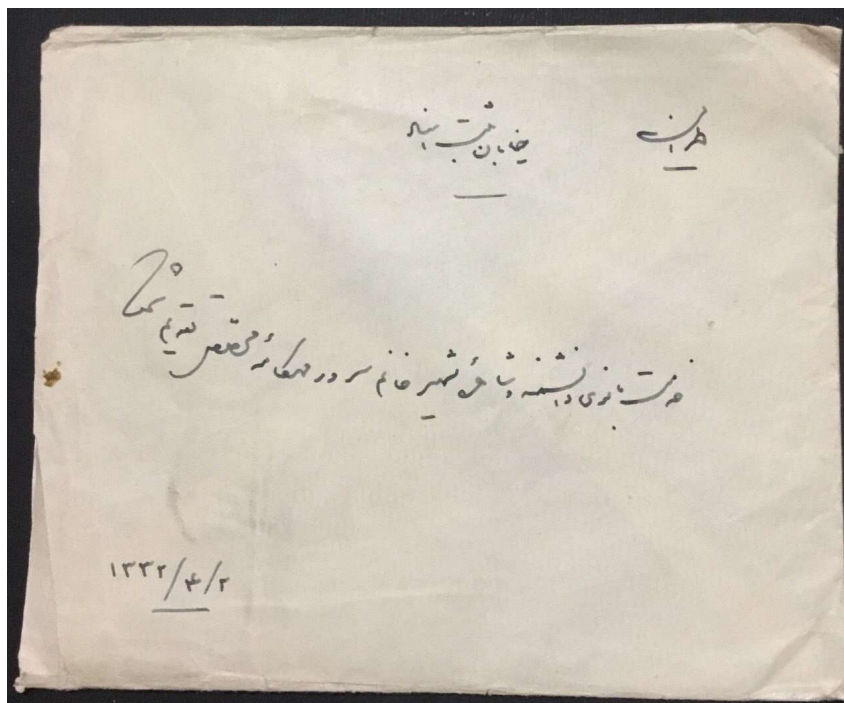 طهران خیابان ثبت
خدمت بانوی دانشمند و شاعرهٔ شهیر خانم سرور مهکامهٔ محصص تقدیم شود
۱۳۳۲/۴/۲